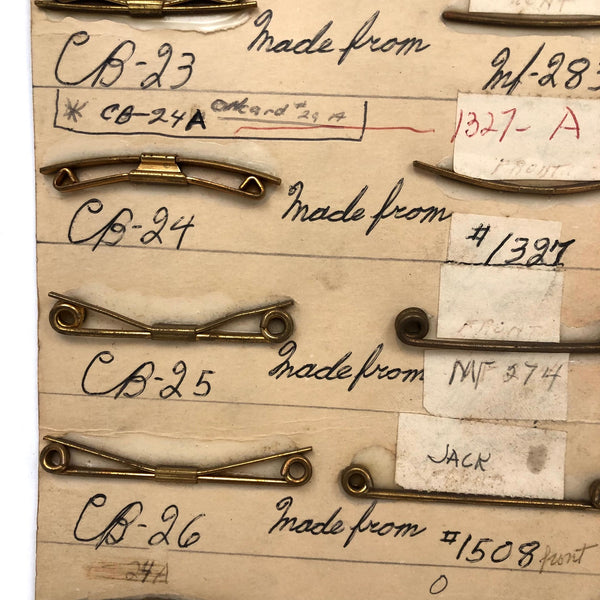 FRONT
CB-23 Made from Mf-283
* CB-24A on card # 29 A 1327-A
FRONT
CB-24 Made from #1327
FRONT
CB-25 Made from MF 274
JACK
CB-26 Made from #1508 front
24A
O